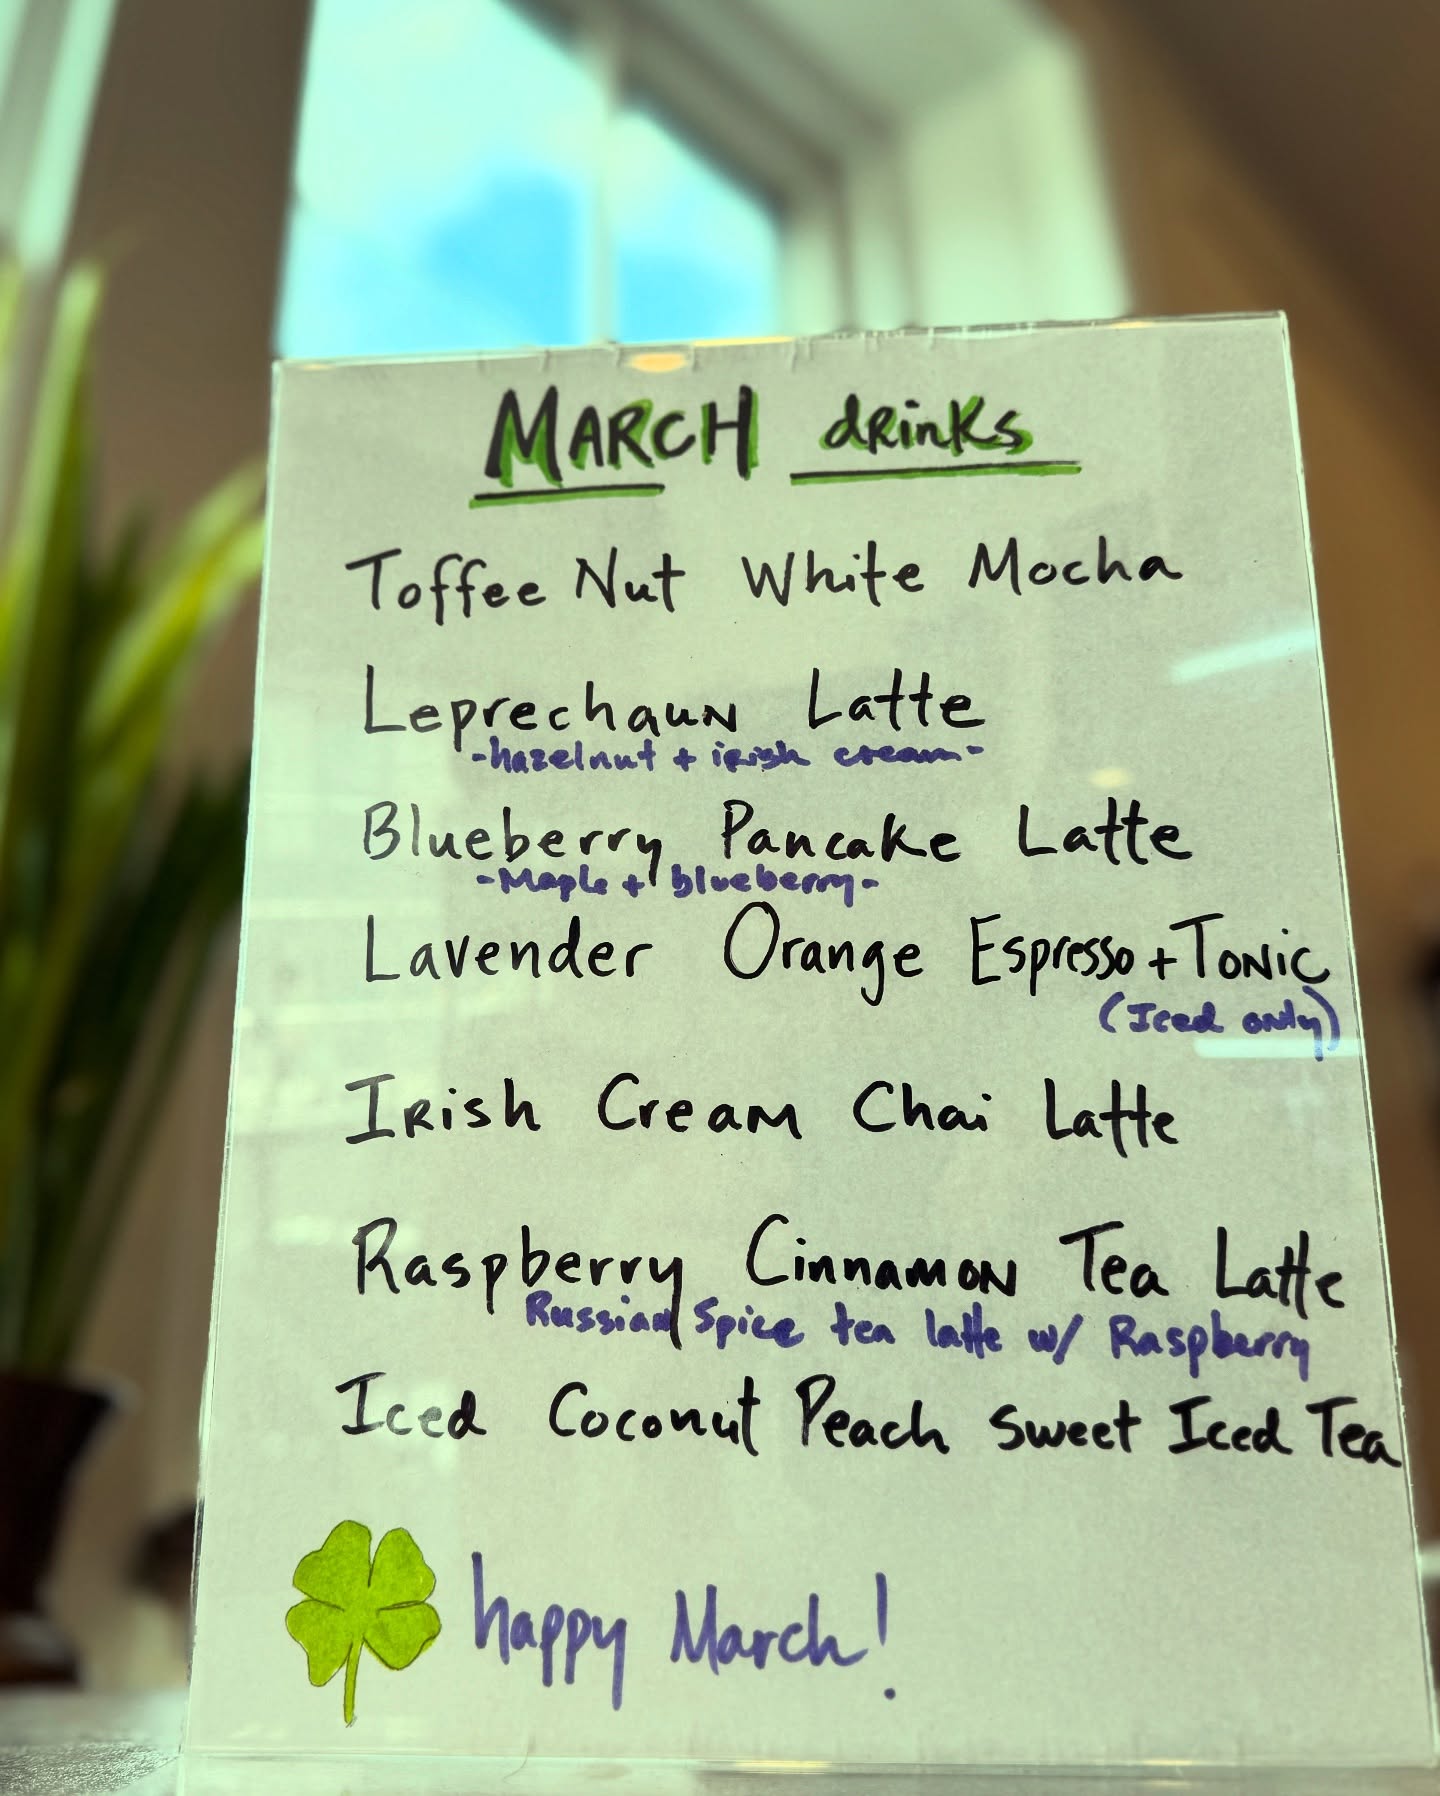 MARCH drinks
Toffee Nut White Mocha
Leprechaun Latte
-hazelnut + irish cream-
Blueberry Pancake Latte
-Maple + blueberry-
Lavender Orange Espresso + Tonic
(Iced only)
Irish Cream Chai Latte
Raspberry Cinnamon Tea Latte
Russian Spice tea latte w/ Raspberry
Iced Coconut Peach Sweet Iced Tea
happy March!